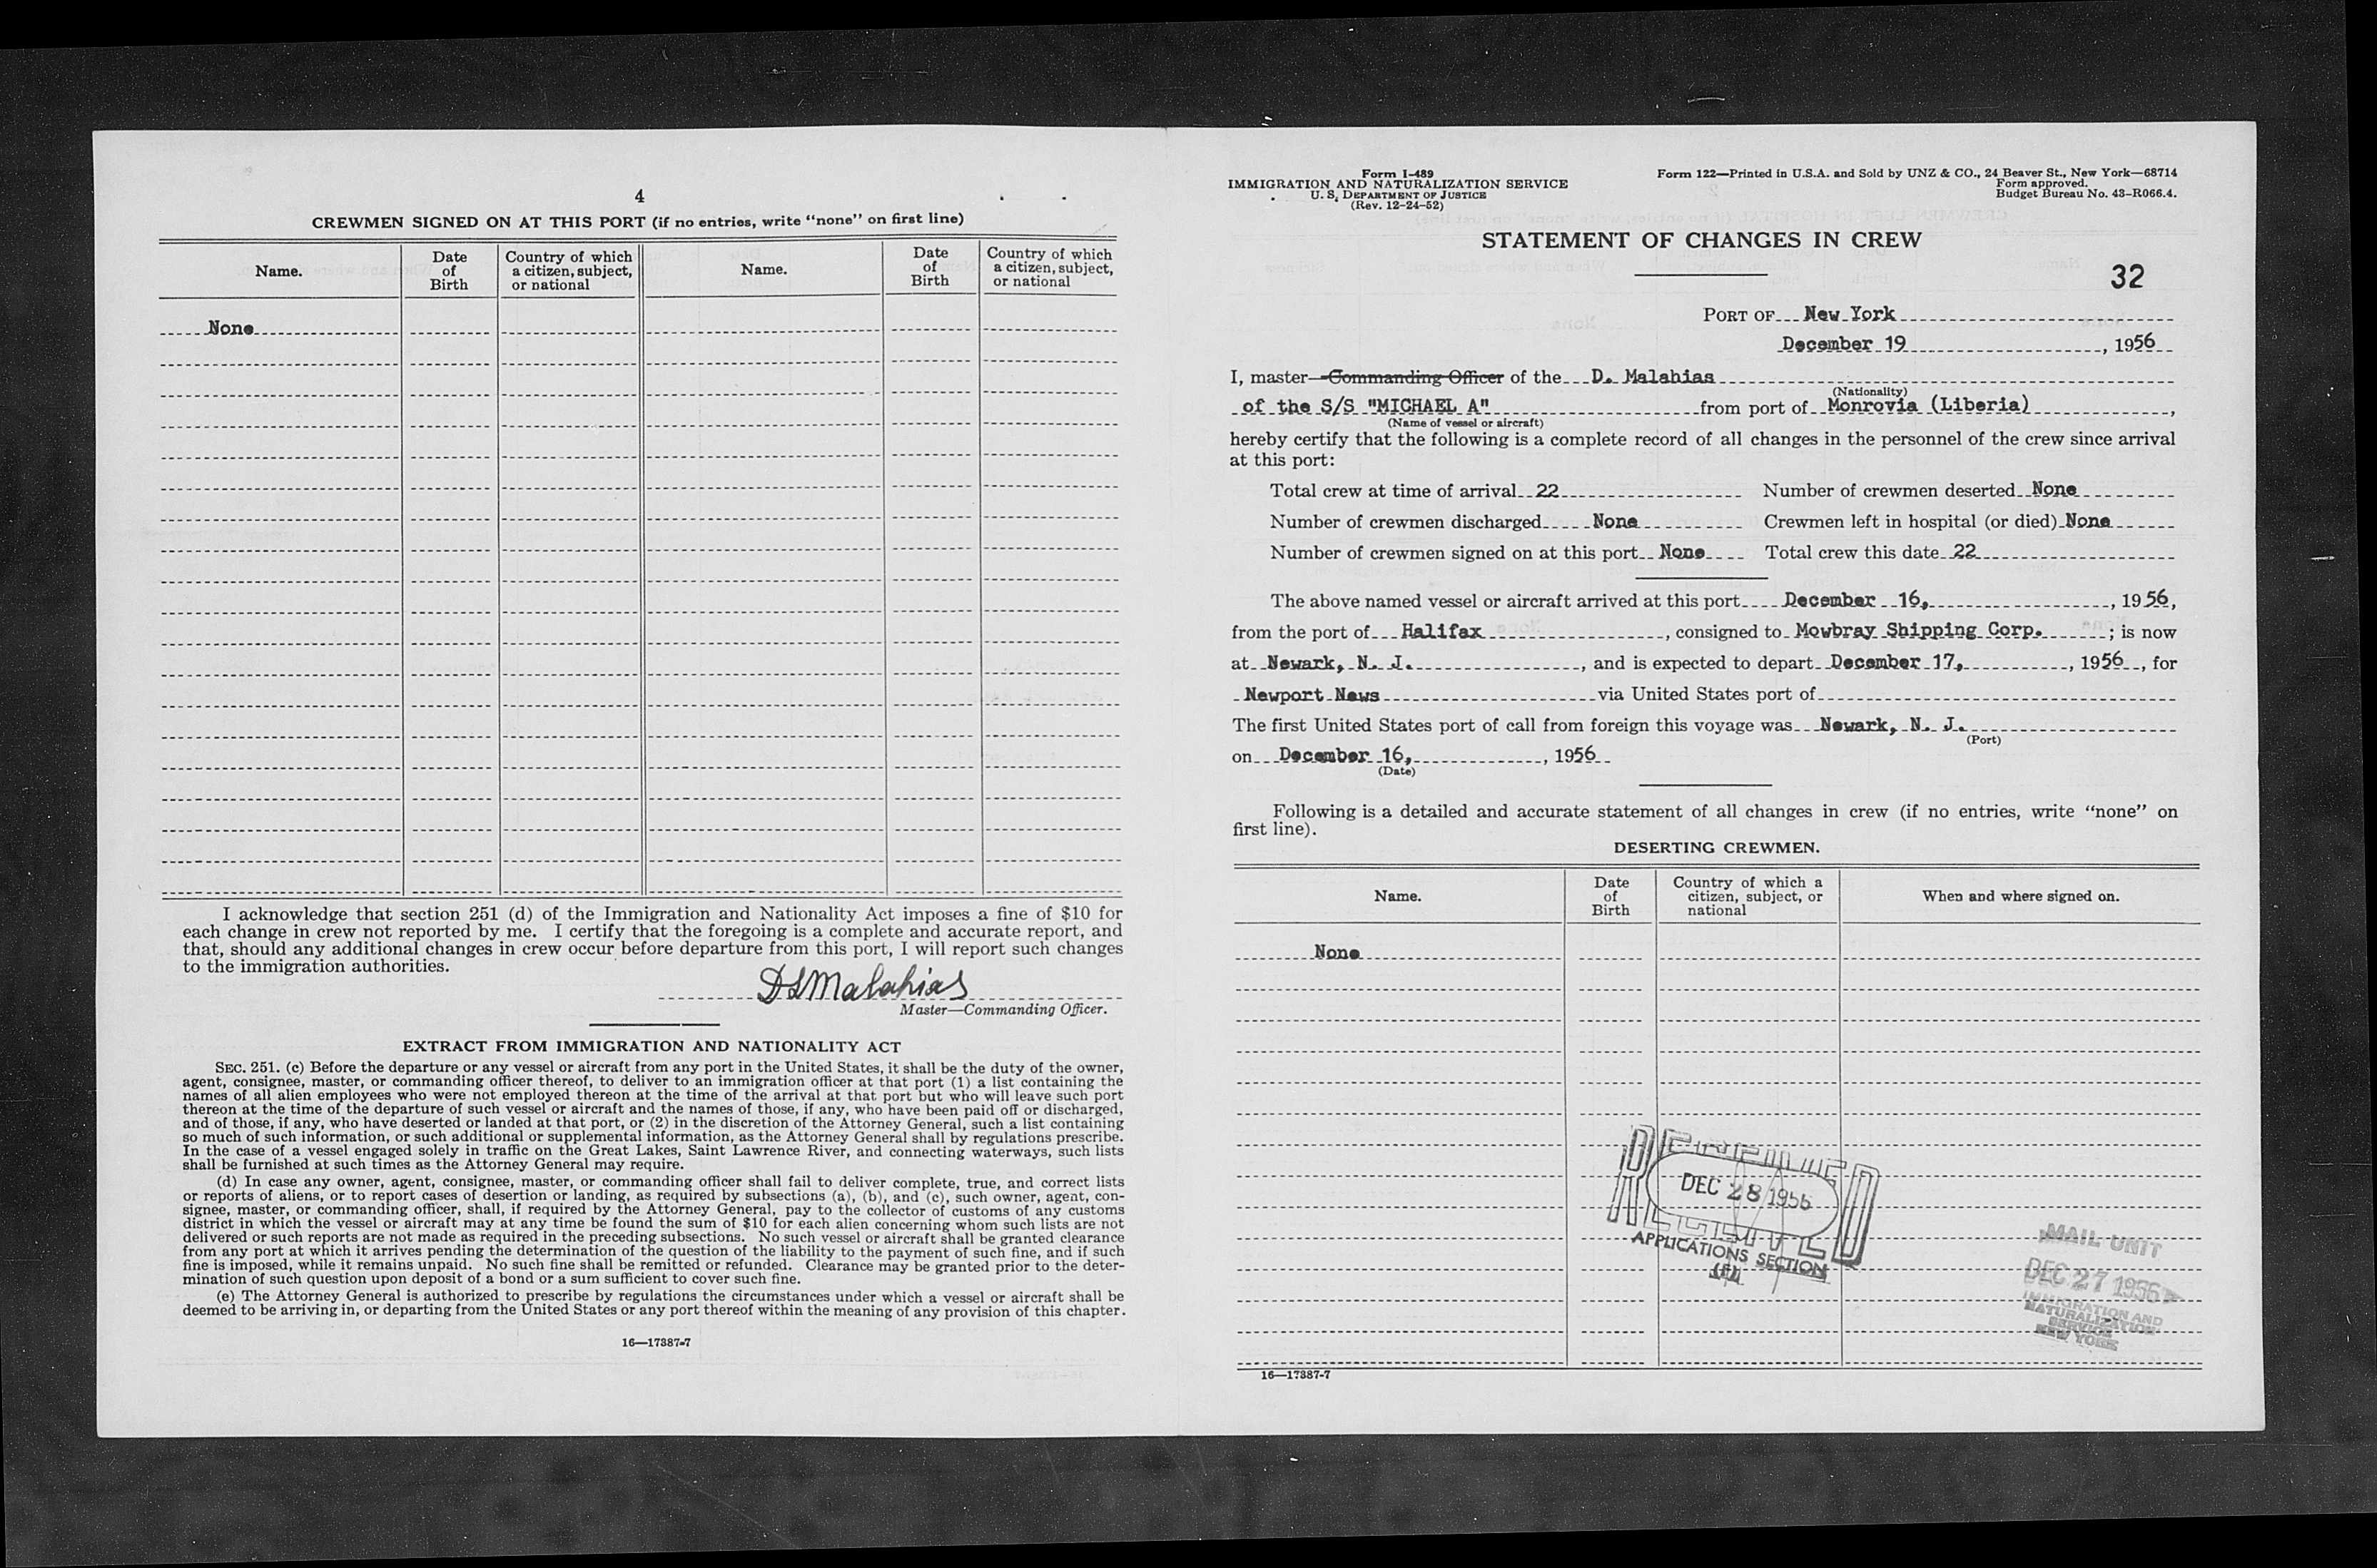 4
CREWMEN SIGNED ON AT THIS PORT (if no entries, write "none" on first line)
Name. Date of Birth Country of which a citizen, subject, or national Name. Date of Birth Country of which a citizen, subject, or national
None
I acknowledge that section 251 (d) of the Immigration and Nationality Act imposes a fine of $10 for
each change in crew not reported by me. I certify that the foregoing is a complete and accurate report, and
that, should any additional changes in crew occur before departure from this port, I will report such changes
to the immigration authorities.
DSMalahias
Master—Commanding Officer.
EXTRACT FROM IMMIGRATION AND NATIONALITY ACT
SEC. 251. (c) Before the departure or any vessel or aircraft from any port in the United States, it shall be the duty of the owner,
agent, consignee, master, or commanding officer thereof, to deliver to an immigration officer at that port (1) a list containing the
names of all alien employees who were not employed thereon at the time of the arrival at that port but who will leave such port
thereon at the time of the departure of such vessel or aircraft and the names of those, if any, who have been paid off or discharged,
and of those, if any, who have deserted or landed at that port, or (2) in the discretion of the Attorney General, such a list containing
so much of such information, or such additional or supplemental information, as the Attorney General shall by regulations prescribe.
In the case of a vessel engaged solely in traffic on the Great Lakes, Saint Lawrence River, and connecting waterways, such lists
shall be furnished at such times as the Attorney General may require.
(d) In case any owner, agent, consignee, master, or commanding officer shall fail to deliver complete, true, and correct lists
or reports of aliens, or to report cases of desertion or landing, as required by subsections (a), (b), and (c), such owner, agent, con-
signee, master, or commanding officer, shall, if required by the Attorney General, pay to the collector of customs of any customs
district in which the vessel or aircraft may at any time be found the sum of $10 for each alien concerning whom such lists are not
delivered or such reports are not made as required in the preceding subsections. No such vessel or aircraft shall be granted clearance
from any port at which it arrives pending the determination of the question of the liability to the payment of such fine, and if such
fine is imposed, while it remains unpaid. No such fine shall be remitted or refunded. Clearance may be granted prior to the deter-
mination of such question upon deposit of a bond or a sum sufficient to cover such fine.
(e) The Attorney General is authorized to prescribe by regulations the circumstances under which a vessel or aircraft shall be
deemed to be arriving in, or departing from the United States or any port thereof within the meaning of any provision of this chapter.
16—17387-7
Form I-489
IMMIGRATION AND NATURALIZATION SERVICE
U. S. DEPARTMENT OF JUSTICE
(Rev. 12-24-52)
Form 122—Printed in U.S.A. and Sold by UNZ & CO., 24 Beaver St., New York—68714
Form approved.
Budget Bureau No. 43-R066.4.
STATEMENT OF CHANGES IN CREW
32
PORT OF New York
December 19, 1956
I, master—Commanding Officer of the D. Malahias
(Nationality)
of the S/S "MICHAEL A" from port of Monrovia (Liberia),
(Name of vessel or aircraft)
hereby certify that the following is a complete record of all changes in the personnel of the crew since arrival
at this port:
Total crew at time of arrival 22 Number of crewmen deserted None
Number of crewmen discharged None Crewmen left in hospital (or died) None
Number of crewmen signed on at this port None Total crew this date 22
The above named vessel or aircraft arrived at this port December 16, , 1956,
from the port of Halifax , consigned to Mowbray Shipping Corp. ; is now
at Newark, N. J. , and is expected to depart December 17, , 1956 , for
Newport News via United States port of
The first United States port of call from foreign this voyage was Newark, N. J.
(Port)
on December 16, , 1956
(Date)
Following is a detailed and accurate statement of all changes in crew (if no entries, write "none" on
first line).
DESERTING CREWMEN.
Name. Date of Birth Country of which a citizen, subject, or national When and where signed on.
None
RECEIVED
DEC 28 1956
RECEIVED
APPLICATIONS SECTION
MAIL UNIT
DEC 27 1956
IMMIGRATION AND
NATURALIZATION
SERVICE
NEW YORK
16—17387-7